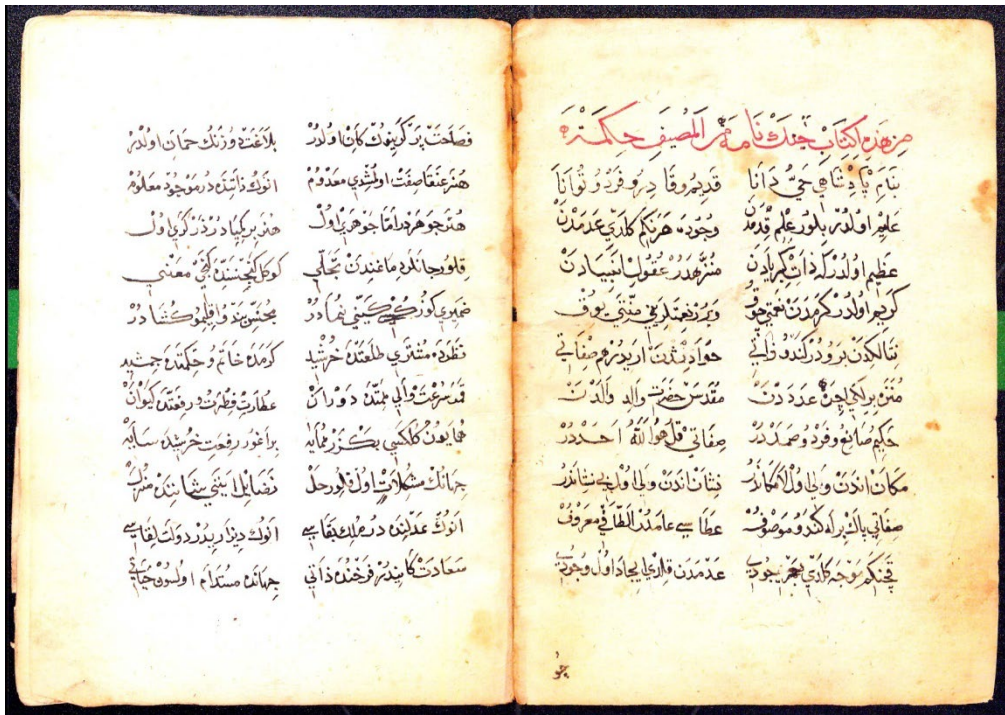 من هذه اكتاب جنك نامه من المصيف حكمته
بنام پادشاهي حي دانا قديم وقادر وفرد وتوانا
عليم اولدر بلور علم قدمدن وجوده هر نكم كلدي عدمدن
عظيم اولدركه ذات كبريادن منزهدر عقول انبيادن
كريم اولدر كرمدن نعمتي چوق ويرر نعمتلريني منتي يوق
تتالكدن برودر كندو ذاتي حوادثدن اريدر هم صفاتي
منزه برايكي اچره عدددن مقدس حضرت والد ولددن
حكيم صانع وفرد وصمددر صفاتي قل هو الله احددر
مكان اندن ولي اول لامكاندر نشان اندن ولي اول بي نشاندر
صفاتي پاك براه كندو موصوف عطاسي عامدر الطافي معروف
قچنكم موجه كلدي بحر جودي عدمدن قلدي ايجاد اول وجودي
چو
فصاحت پر كريفوك كان اولدر بلاغت دورنك حمان اولدر
هنر عنقا صفت اولمشدي معدوم انوك ذاتنده در موجود معلوم
هنر جوهردر اما جوهري اول هنر بر كيميادر زركري اول
قلور جانلرده ماغندن تجلي كوكل كنجننده كنج معني
ضميري كوزكوسي كيتي نمادر محبتن بند واقليم كشادر
نظرده مشتري طلعتده خرشيد كرمده خاتم وحكمتده جمشيد
قمر سرعت ولي همتده دوران عطارد فطرت ورفعتده كيوان
همايون كالكبي بكزر همايه براغور رفعت خرشيده سايه
جهانك مشكلاتن اول قلور حل فضايل ايتي شاننده منزل
انوك عدلنده در ملك بقاسي انوك ديدار يدر دولت لقاسي
سعادت كانيدر فرخنده ذاتي جهانده مستدام اولسون حياتي